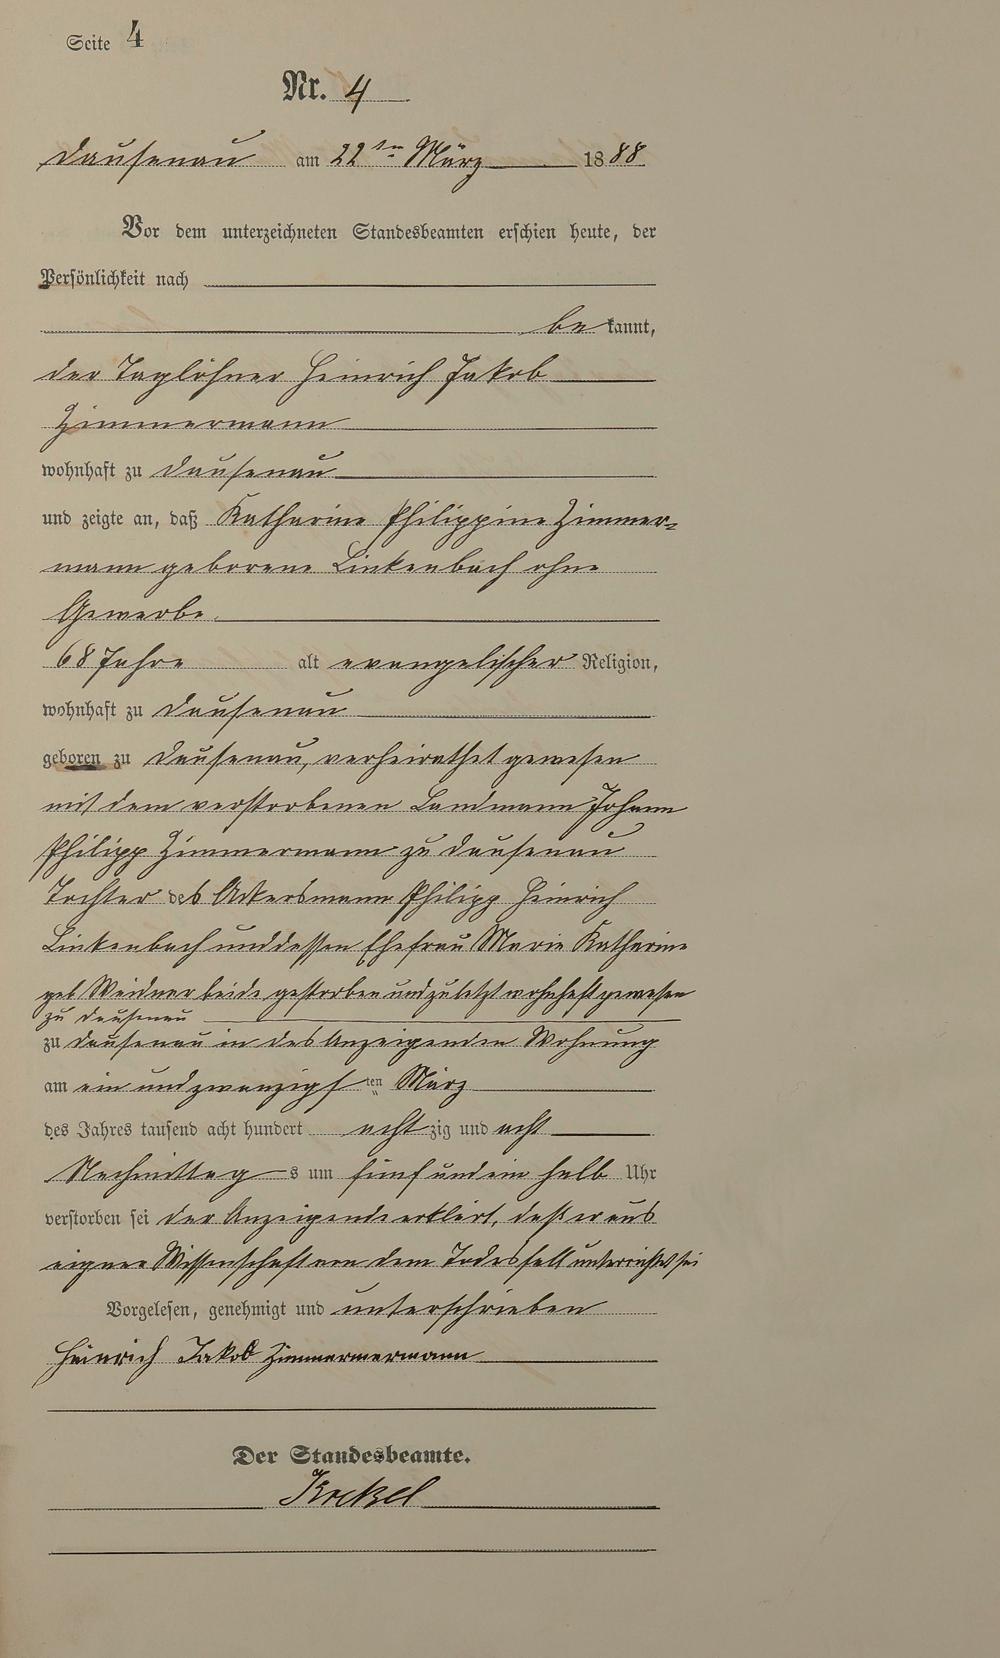 Seite 4
Nr. 4
Dausenau am 22ten März 1888
Vor dem unterzeichneten Standesbeamten erschien heute, der
Persönlichkeit nach
bekannt,
der Taglöhner Heinrich Jakob
Zimmermann
wohnhaft zu Dausenau
und zeigte an, daß Katharine Philippine Zimmer-
mann geborene Linkenbach ohne
Gewerbe.
68 Jahre alt evangelischer Religion,
wohnhaft zu Dausenau
geboren zu Dausenau, verheirathet gewesen
mit dem verstorbenen Landmann Johann
Philipp Zimmermann zu Dausenau
Tochter des Ackersmann Philipp Heinrich
Linkenbach und dessen Ehefrau Marie Katharine
geb Weidner beide gestorben und zuletzt wohnhaft gewesen
zu Dausenau
zu Dausenau in des Anzeigenden Wohnung
am ein und zwanzigsten März
des Jahres tausend acht hundert achtzig und acht
Nachmittags um fünf und ein halb Uhr
verstorben sei der Anzeigende erklärt, daß er aus
eigner Wissenschaft von dem Todesfall unterrichtet sei
Vorgelesen, genehmigt und unterschrieben
Heinrich Jakob Zimmermermann
Der Standesbeamte.